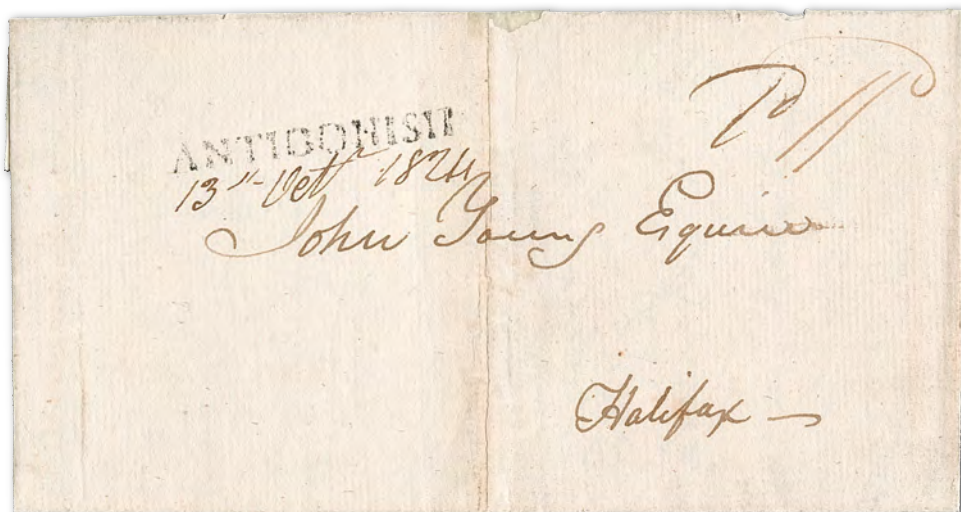 ANTIGONISH
13" Octr 1824
John Young Esquire
Halifax —